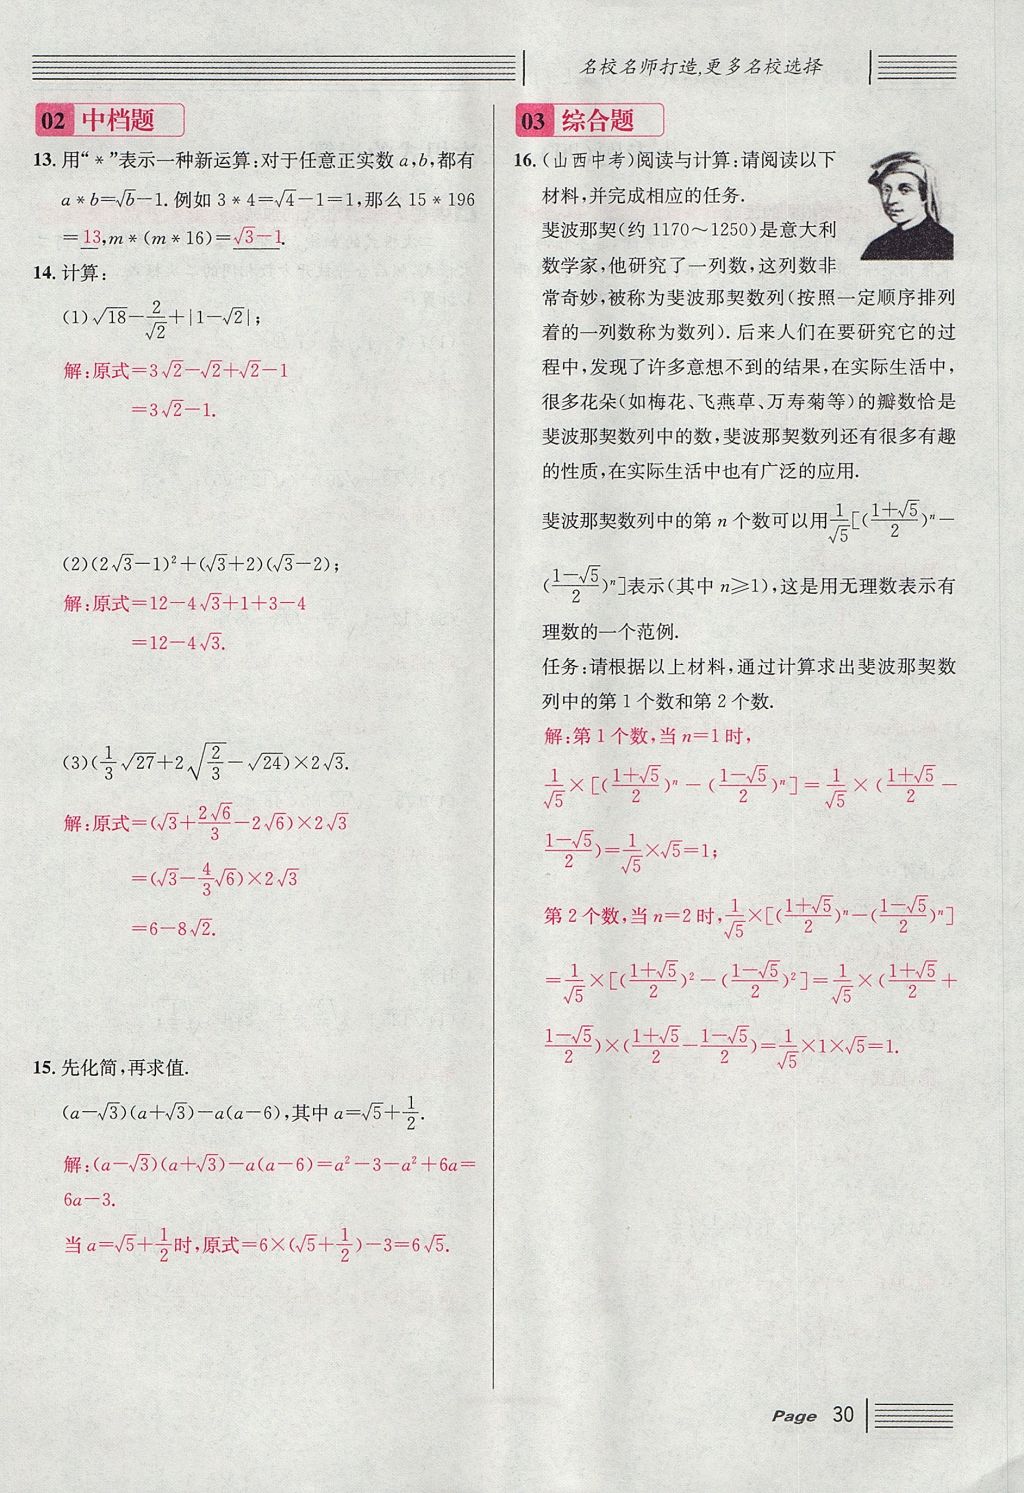 名校名师打造,更多名校选择
02 中档题
13. 用“*”表示一种新运算:对于任意正实数 a,b,都有
a*b=√b-1. 例如 3*4=√4-1=1,那么 15*196
= 13,m*(m*16)= √3-1.
14. 计算:
(1)√18-2/√2+|1-√2|;
解:原式=3√2-√2+√2-1
=3√2-1.
(2)(2√3-1)²+(√3+2)(√3-2);
解:原式=12-4√3+1+3-4
=12-4√3.
(3)(1/3√27+2√(2/3)-√24)×2√3.
解:原式=(√3+2√6/3-2√6)×2√3
=(√3-4/3√6)×2√3
=6-8√2.
15. 先化简,再求值.
(a-√3)(a+√3)-a(a-6),其中 a=√5+1/2.
解:(a-√3)(a+√3)-a(a-6)=a²-3-a²+6a=
6a-3.
当 a=√5+1/2时,原式=6×(√5+1/2)-3=6√5.
03 综合题
16. (山西中考)阅读与计算:请阅读以下
材料,并完成相应的任务.
斐波那契(约 1170~1250)是意大利
数学家,他研究了一列数,这列数非
常奇妙,被称为斐波那契数列(按照一定顺序排列
着的一列数称为数列). 后来人们在要研究它的过
程中,发现了许多意想不到的结果,在实际生活中,
很多花朵(如梅花、飞燕草、万寿菊等)的瓣数恰是
斐波那契数列中的数,斐波那契数列还有很多有趣
的性质,在实际生活中也有广泛的应用.
斐波那契数列中的第 n 个数可以用1/√5[((1+√5)/2)ⁿ-
((1-√5)/2)ⁿ]表示(其中 n≥1),这是用无理数表示有
理数的一个范例.
任务:请根据以上材料,通过计算求出斐波那契数
列中的第 1 个数和第 2 个数.
解:第 1 个数,当 n=1 时,
1/√5×[((1+√5)/2)ⁿ-((1-√5)/2)ⁿ]=1/√5×((1+√5)/2-
(1-√5)/2)=1/√5×√5=1;
第 2 个数,当 n=2 时,1/√5×[((1+√5)/2)ⁿ-((1-√5)/2)ⁿ]
=1/√5×[((1+√5)/2)²-((1-√5)/2)²]=1/√5×((1+√5)/2+
(1-√5)/2)×((1+√5)/2-(1-√5)/2)=1/√5×1×√5=1.
Page 30